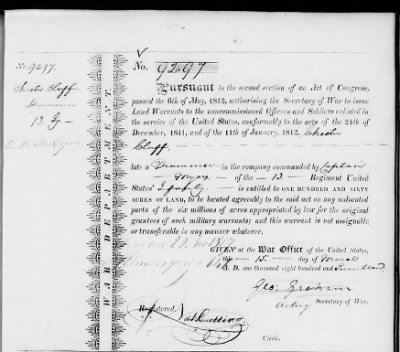 No. 9297.
Drummer
13
WAR DEPARTMENT.
No. 9297
Pursuant to the second section of an Act of Congress,
passed the 6th of May, 1812, authorising the Secretary of War to issue
Land Warrants to the noncommissioned Officers and Soldiers enlisted in
the service of the United States, conformably to the acts of the 24th of
December, 1811, and of the 11th of January, 1812, Chester
late a Drummer in the company commanded by Captain
of the 13 Regiment United
States' Infantry is entitled to ONE HUNDRED AND SIXTY
ACRES OF LAND, to be located agreeably to the said act on any unlocated
parts of the six millions of acres appropriated by law for the original
grantees of such military warrants; and this warrant is not assignable
or transferable in any manner whatever.
GIVEN at the War Office of the United States,
this 15 day of March
A. D. one thousand right hundred and
Geo. Graham
Acting Secretary of War.
Registered,
Clerk.